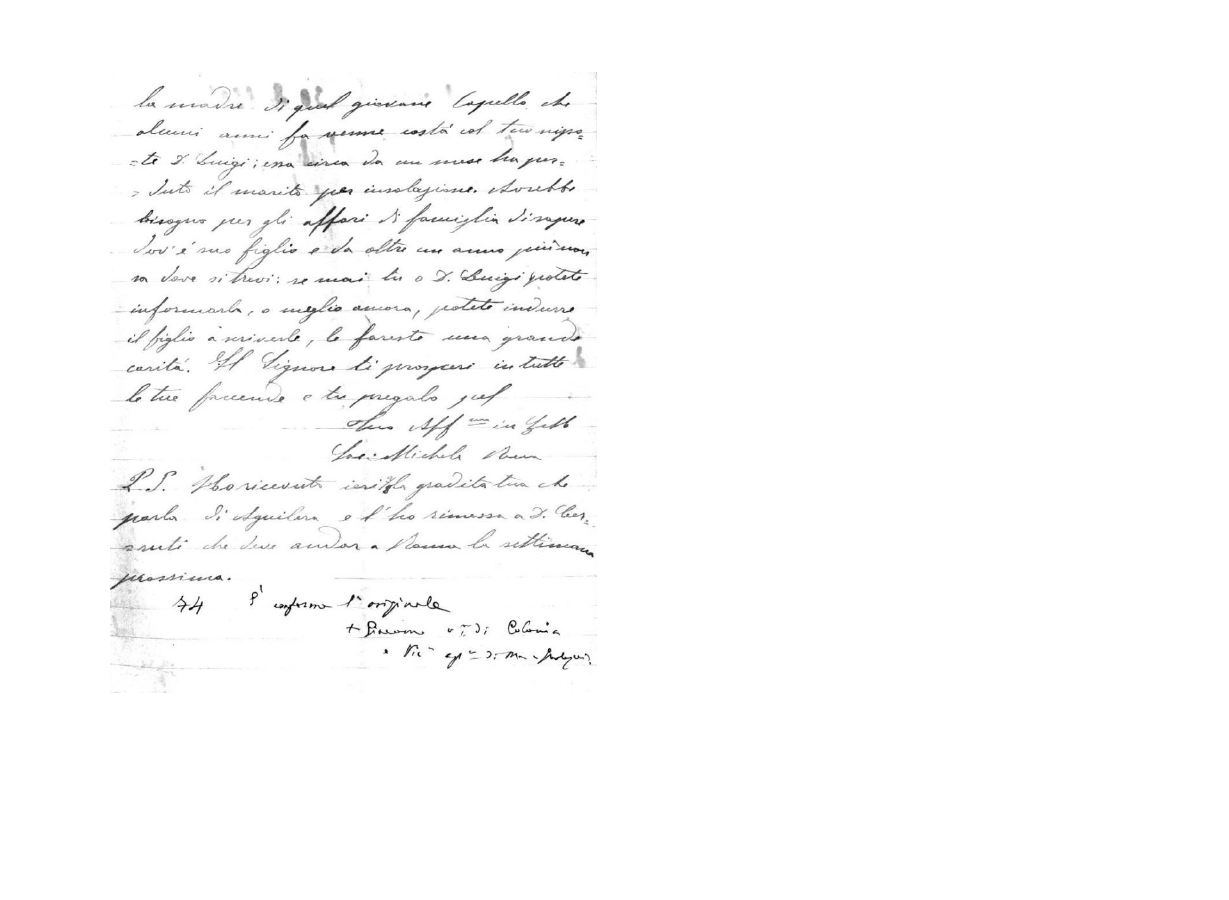 la madre di quel giovane Capello che
alcuni anni fa venne costà col tuo nipo=
=te D. Luigi; essa circa da un mese ha per=
=duto il marito per insolazione. Avrebbe
bisogno per gli affari di famiglia di sapere
dov'è suo figlio e da oltre un anno più non
sa dove si trovi: se mai tu o D. Luigi potete
informarla, o meglio ancora, potete indurre
il figlio a scriverle, le fareste una grande
carità. Il Signore ti prosperi in tutte
le tue faccende e tu pregalo pel
Tuo Aff mo in
Sac. Michele Rua
P.S. Ho ricevuto ieri la gradita tua che
parla di Aguilera e l'ho rimessa a D. Ces=
=ruti che deve andar a Roma la settimana
prossima.
74 È conforme l'originale
+ Giacomo di Colonia
Vic. ap. di